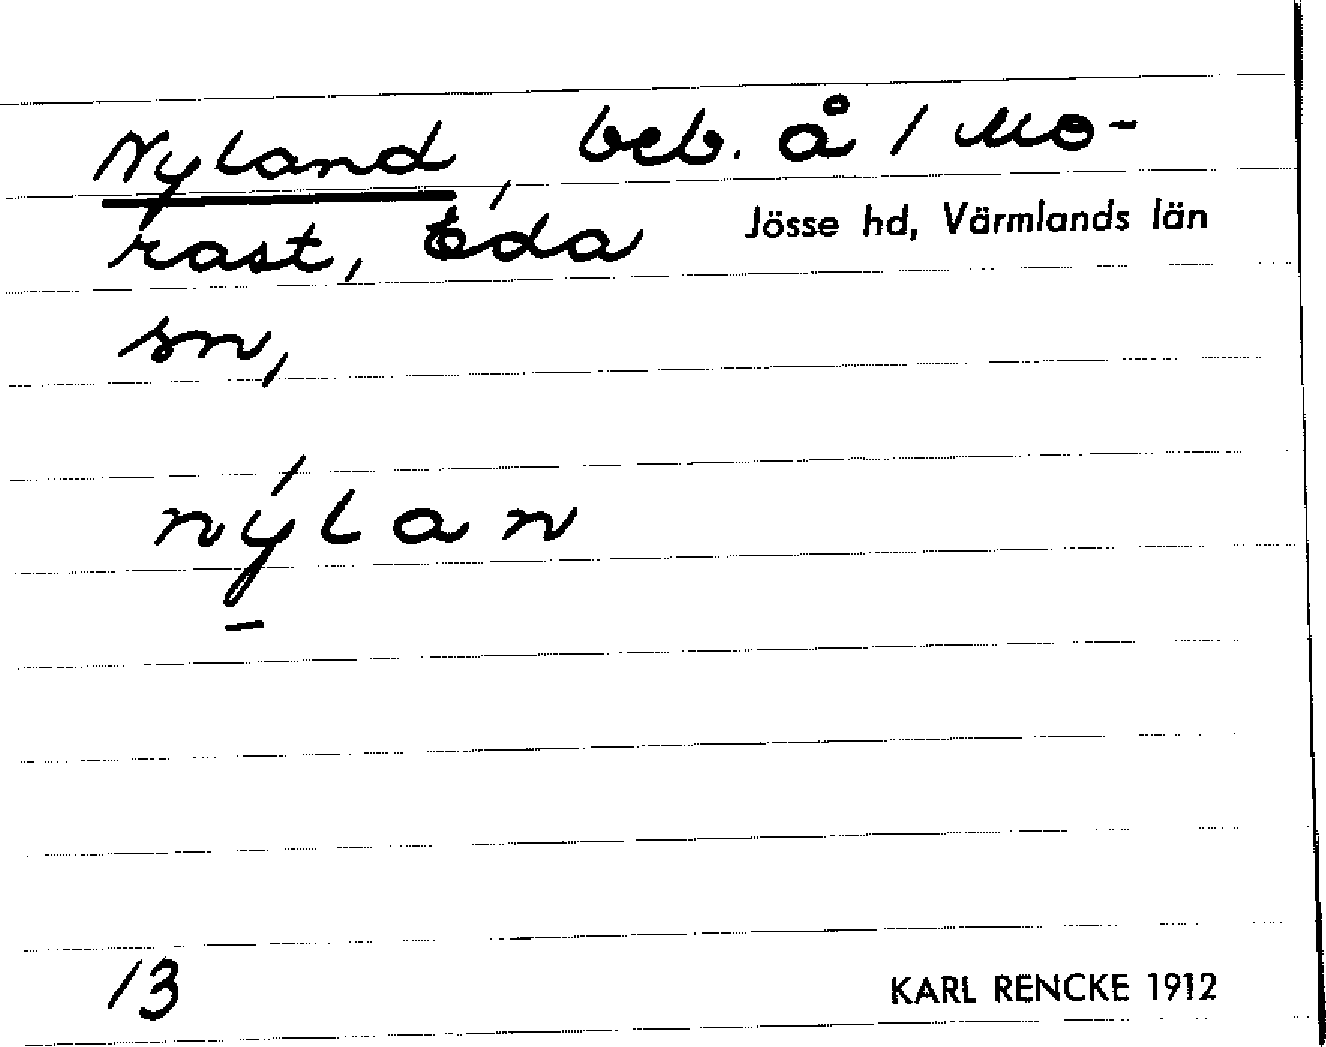 Nyland, beb. å 1 Mo-
rast, Eda Jösse hd, Värmlands län
sn,
nýlan
13 KARL RENCKE 1912